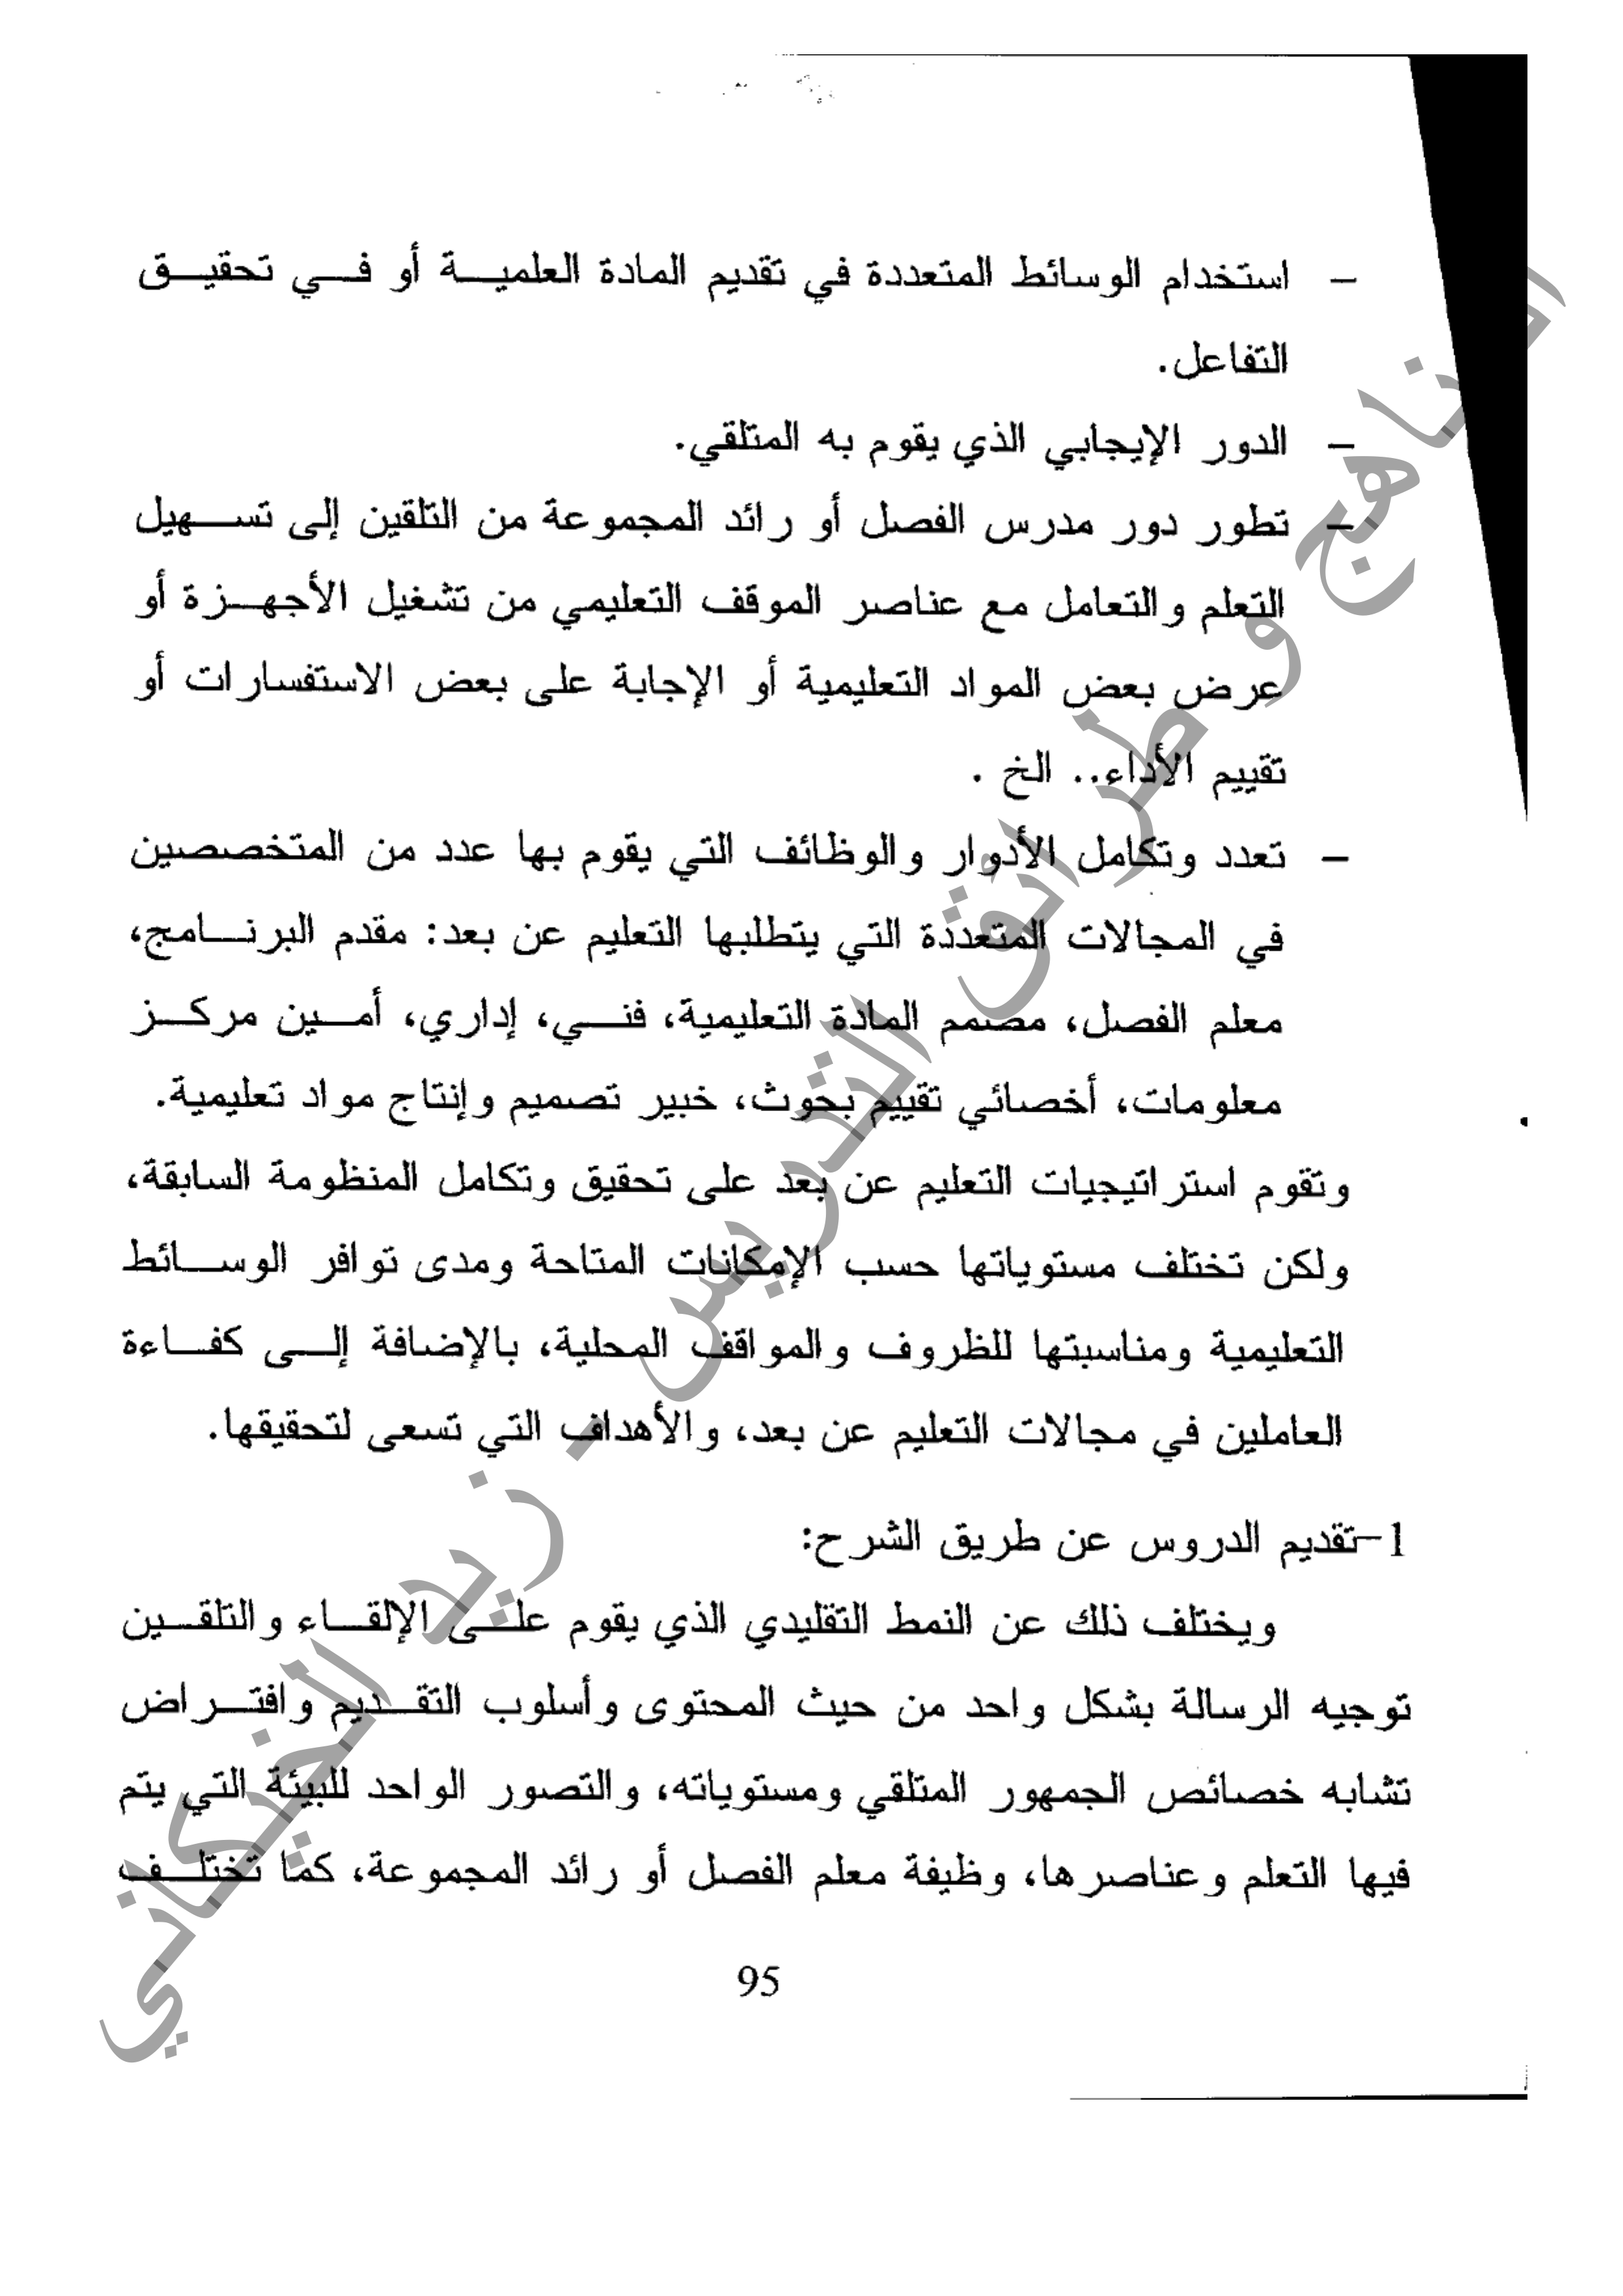 – استخدام الوسائط المتعددة في تقديم المادة العلمية أو في تحقيق
التفاعل.
– الدور الإيجابي الذي يقوم به المتلقي.
– تطور دور مدرس الفصل أو رائد المجموعة من التلقين إلى تسهيل
التعلم والتعامل مع عناصر الموقف التعليمي من تشغيل الأجهزة أو
عرض بعض المواد التعليمية أو الإجابة على بعض الاستفسارات أو
تقييم الأداء.. الخ .
– تعدد وتكامل الأدوار والوظائف التي يقوم بها عدد من المتخصصين
في المجالات المتعددة التي يتطلبها التعليم عن بعد: مقدم البرنامج،
معلم الفصل، مصمم المادة التعليمية، فني، إداري، أمين مركز
معلومات، أخصائي تقييم بحوث، خبير تصميم وإنتاج مواد تعليمية.
وتقوم استراتيجيات التعليم عن بعد على تحقيق وتكامل المنظومة السابقة،
ولكن تختلف مستوياتها حسب الإمكانات المتاحة ومدى توافر الوسائط
التعليمية ومناسبتها للظروف والمواقف المحلية، بالإضافة إلى كفاءة
العاملين في مجالات التعليم عن بعد، والأهداف التي تسعى لتحقيقها.
1–تقديم الدروس عن طريق الشرح:
ويختلف ذلك عن النمط التقليدي الذي يقوم على الإلقاء والتلقين
توجيه الرسالة بشكل واحد من حيث المحتوى وأسلوب التقديم وافتراض
تشابه خصائص الجمهور المتلقي ومستوياته، والتصور الواحد للبيئة التي يتم
فيها التعلم وعناصرها، وظيفة معلم الفصل أو رائد المجموعة، كما تختلف
95
وطرائق التدريس - زيد الخيكاني